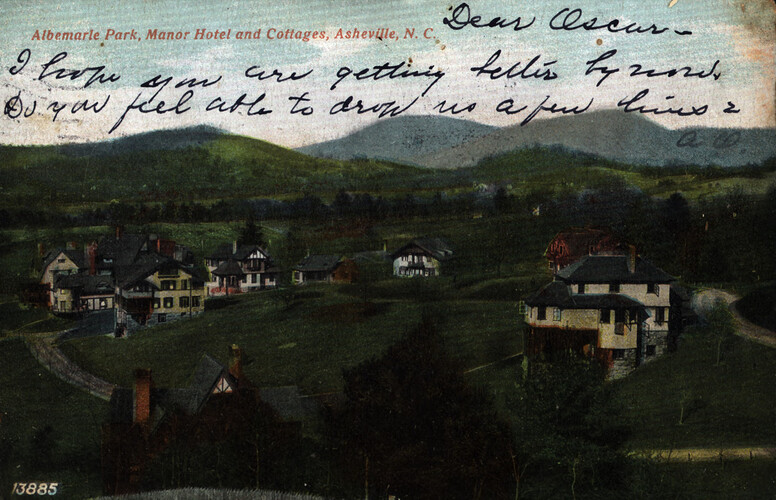 Dear Oscar –
Albemarle Park, Manor Hotel and Cottages, Asheville, N. C.
I hope you are getting better by now.
Do you feel able to drop us a few lines?
13885